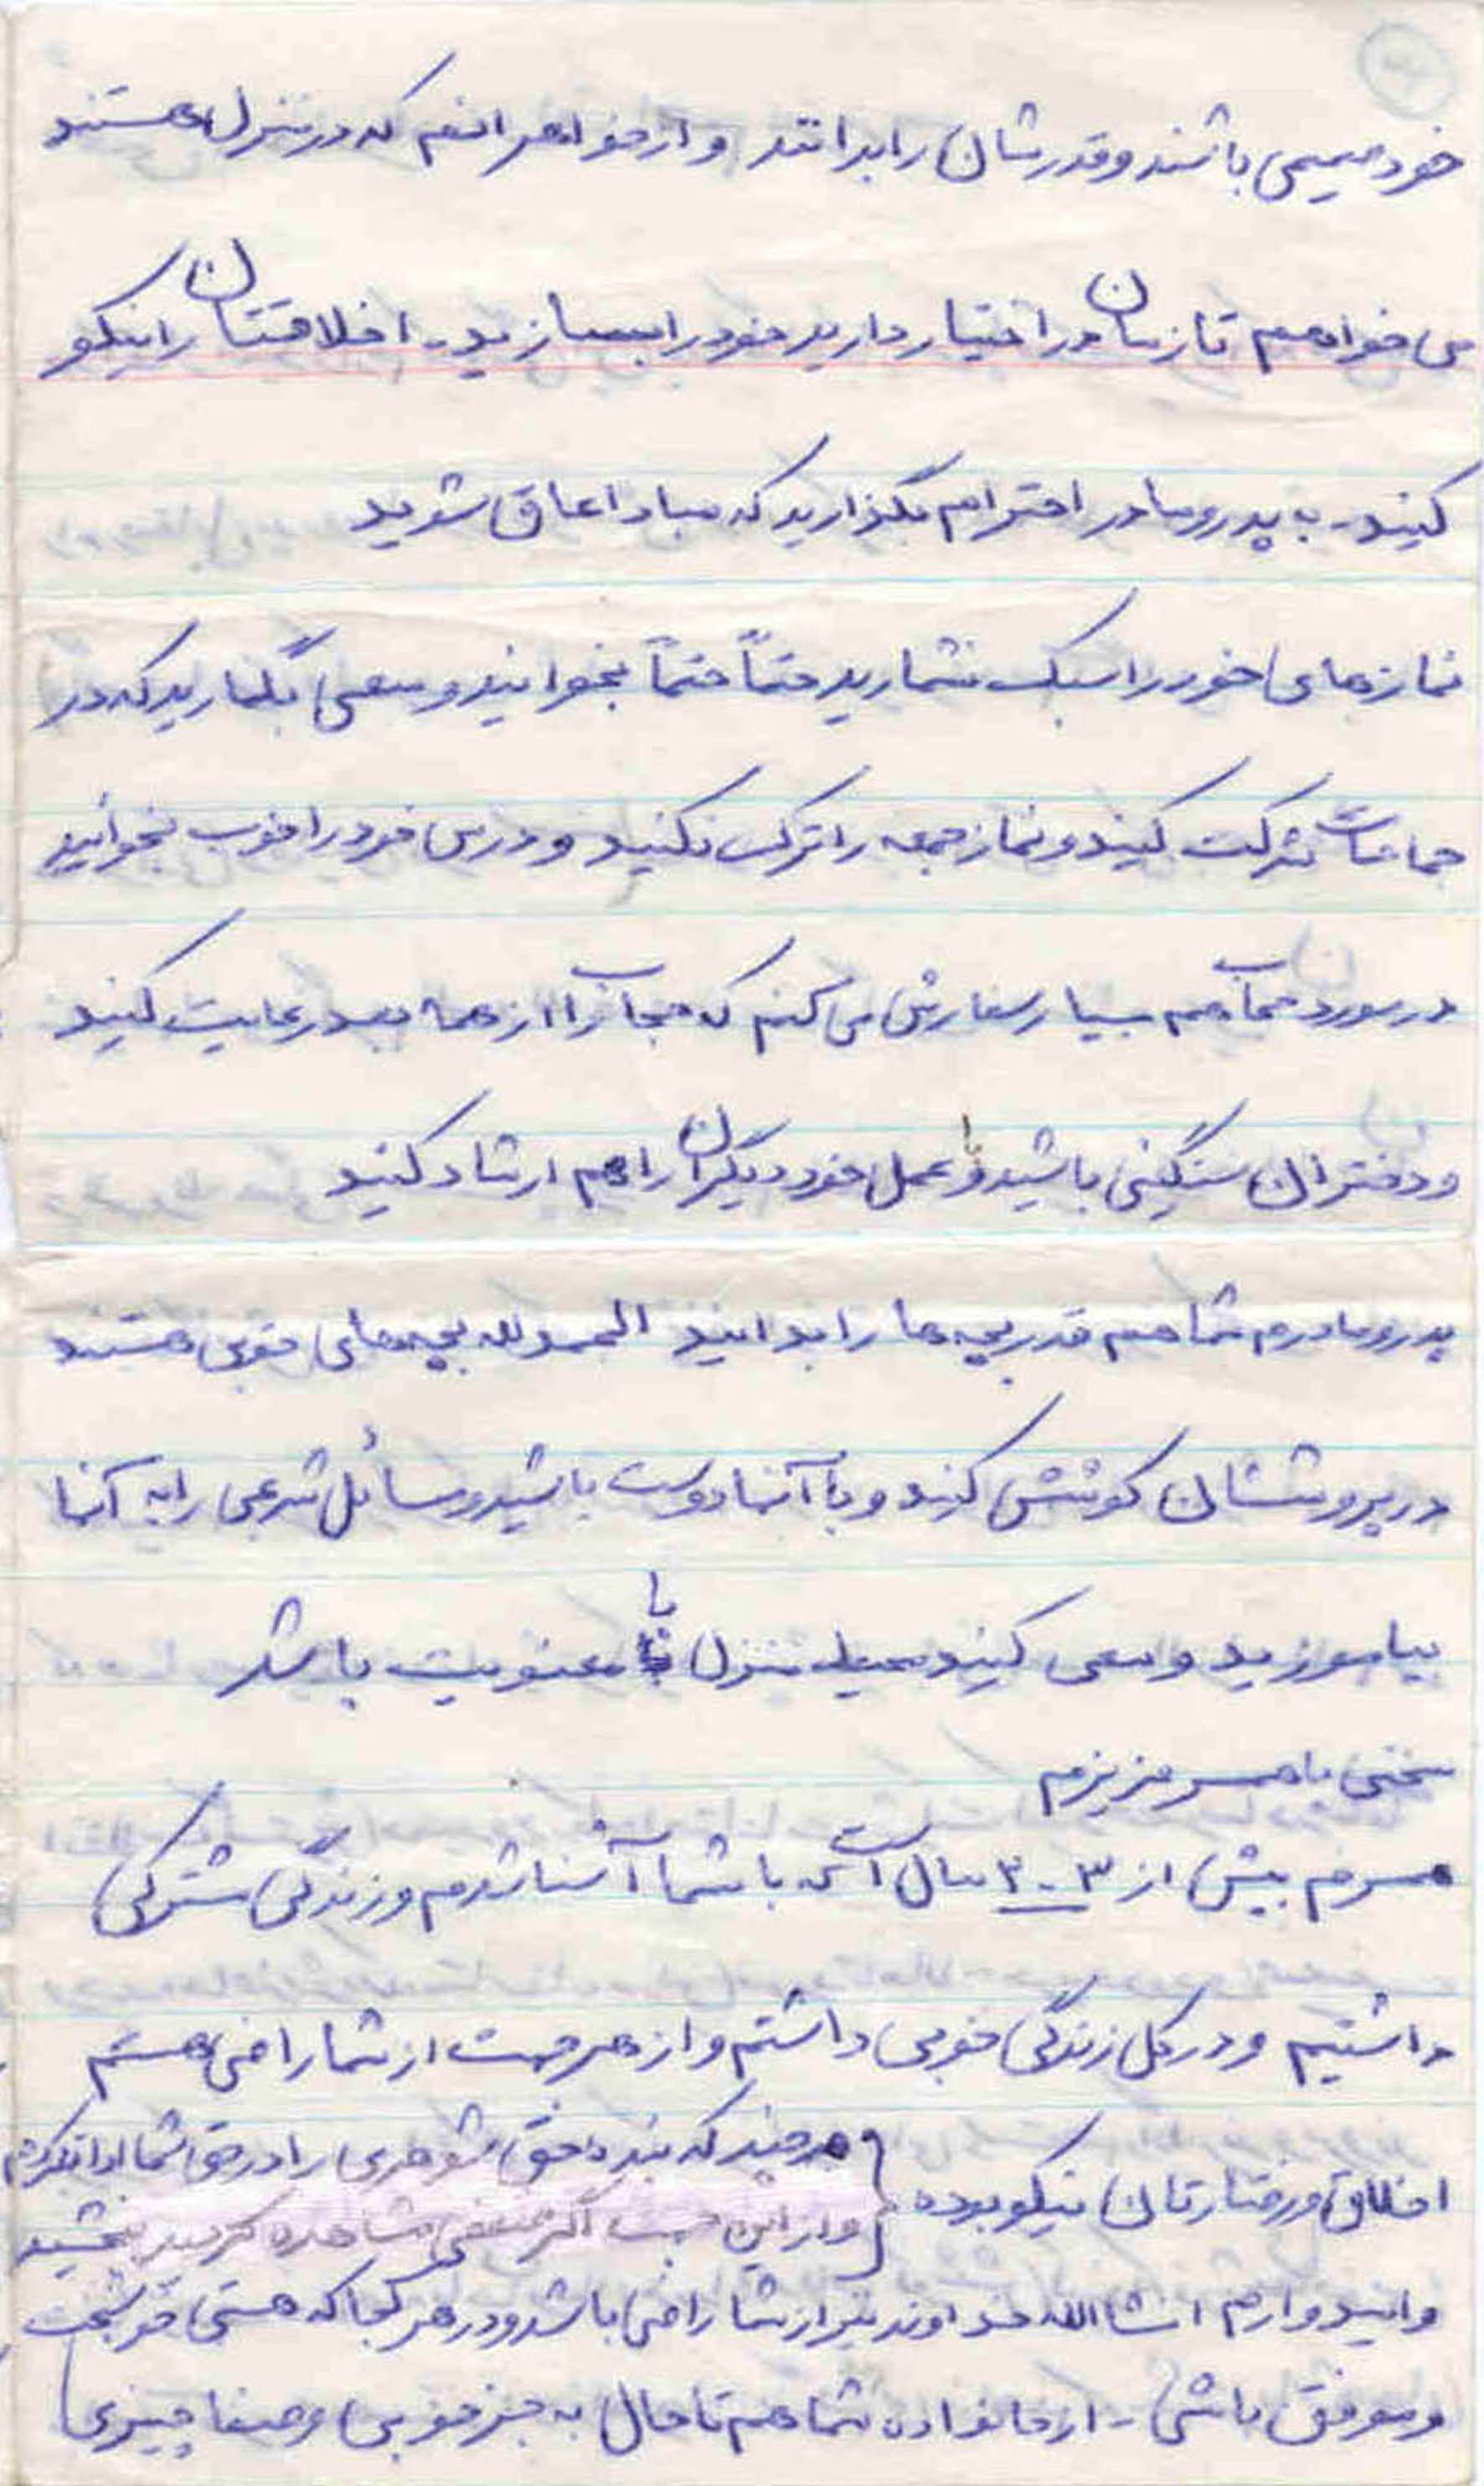 خود صمیمی باشند و قدرشان را بدانند و از خواهرانم که در منزل هستند
می خواهم تا زمان در اختیار دارید خود را بسازید. اخلاقتان را نیکو
کنید. به پدر و مادر احترام بگذارید که مبادا عاق شوید
نمازهای خود را سبک نشمارید حتماً حتماً بخوانید و سعی بگمارید که در
جماعات شرکت کنید و نماز جمعه را ترک نکنید و درس خود را خوب بخوانید
در مورد حجاب هم بسیار سفارش می کنم که حجاب را از همه بعد رعایت کنید
و دختران سنگینی باشید و با عمل خود دیگران را هم ارشاد کنید
پدر و مادرم شما هم قدر بچه ها را بدانید الحمدلله بچه های خوبی هستند
در پرورششان کوشش کنید و با آنها دوست باشید و مسائل شرعی را به آنها
بیاموزید و سعی کنید محیط منزل با معنویت باشد
سخنی با همسر عزیزم
همسرم بیش از ۳-۲ سال است که با شما آشنا شدم و زندگی مشترکی
داشتیم و در کل زندگی خوبی داشتم و از هر جهت از شما راضی هستم
اخلاق و رفتارتان نیکو بوده
هر چند که بنده حق شوهری را در حق شما ادا نکردم
و از این جهت اگر ضعفی مشاهده کردید ببخشید
و امیدوارم انشاالله خداوند نیز از شما راضی باشد و در هر کجا که هستی خوشبخت
و موفق باشی - از خانواده شما هم تا حال به جز خوبی و صفا چیزی